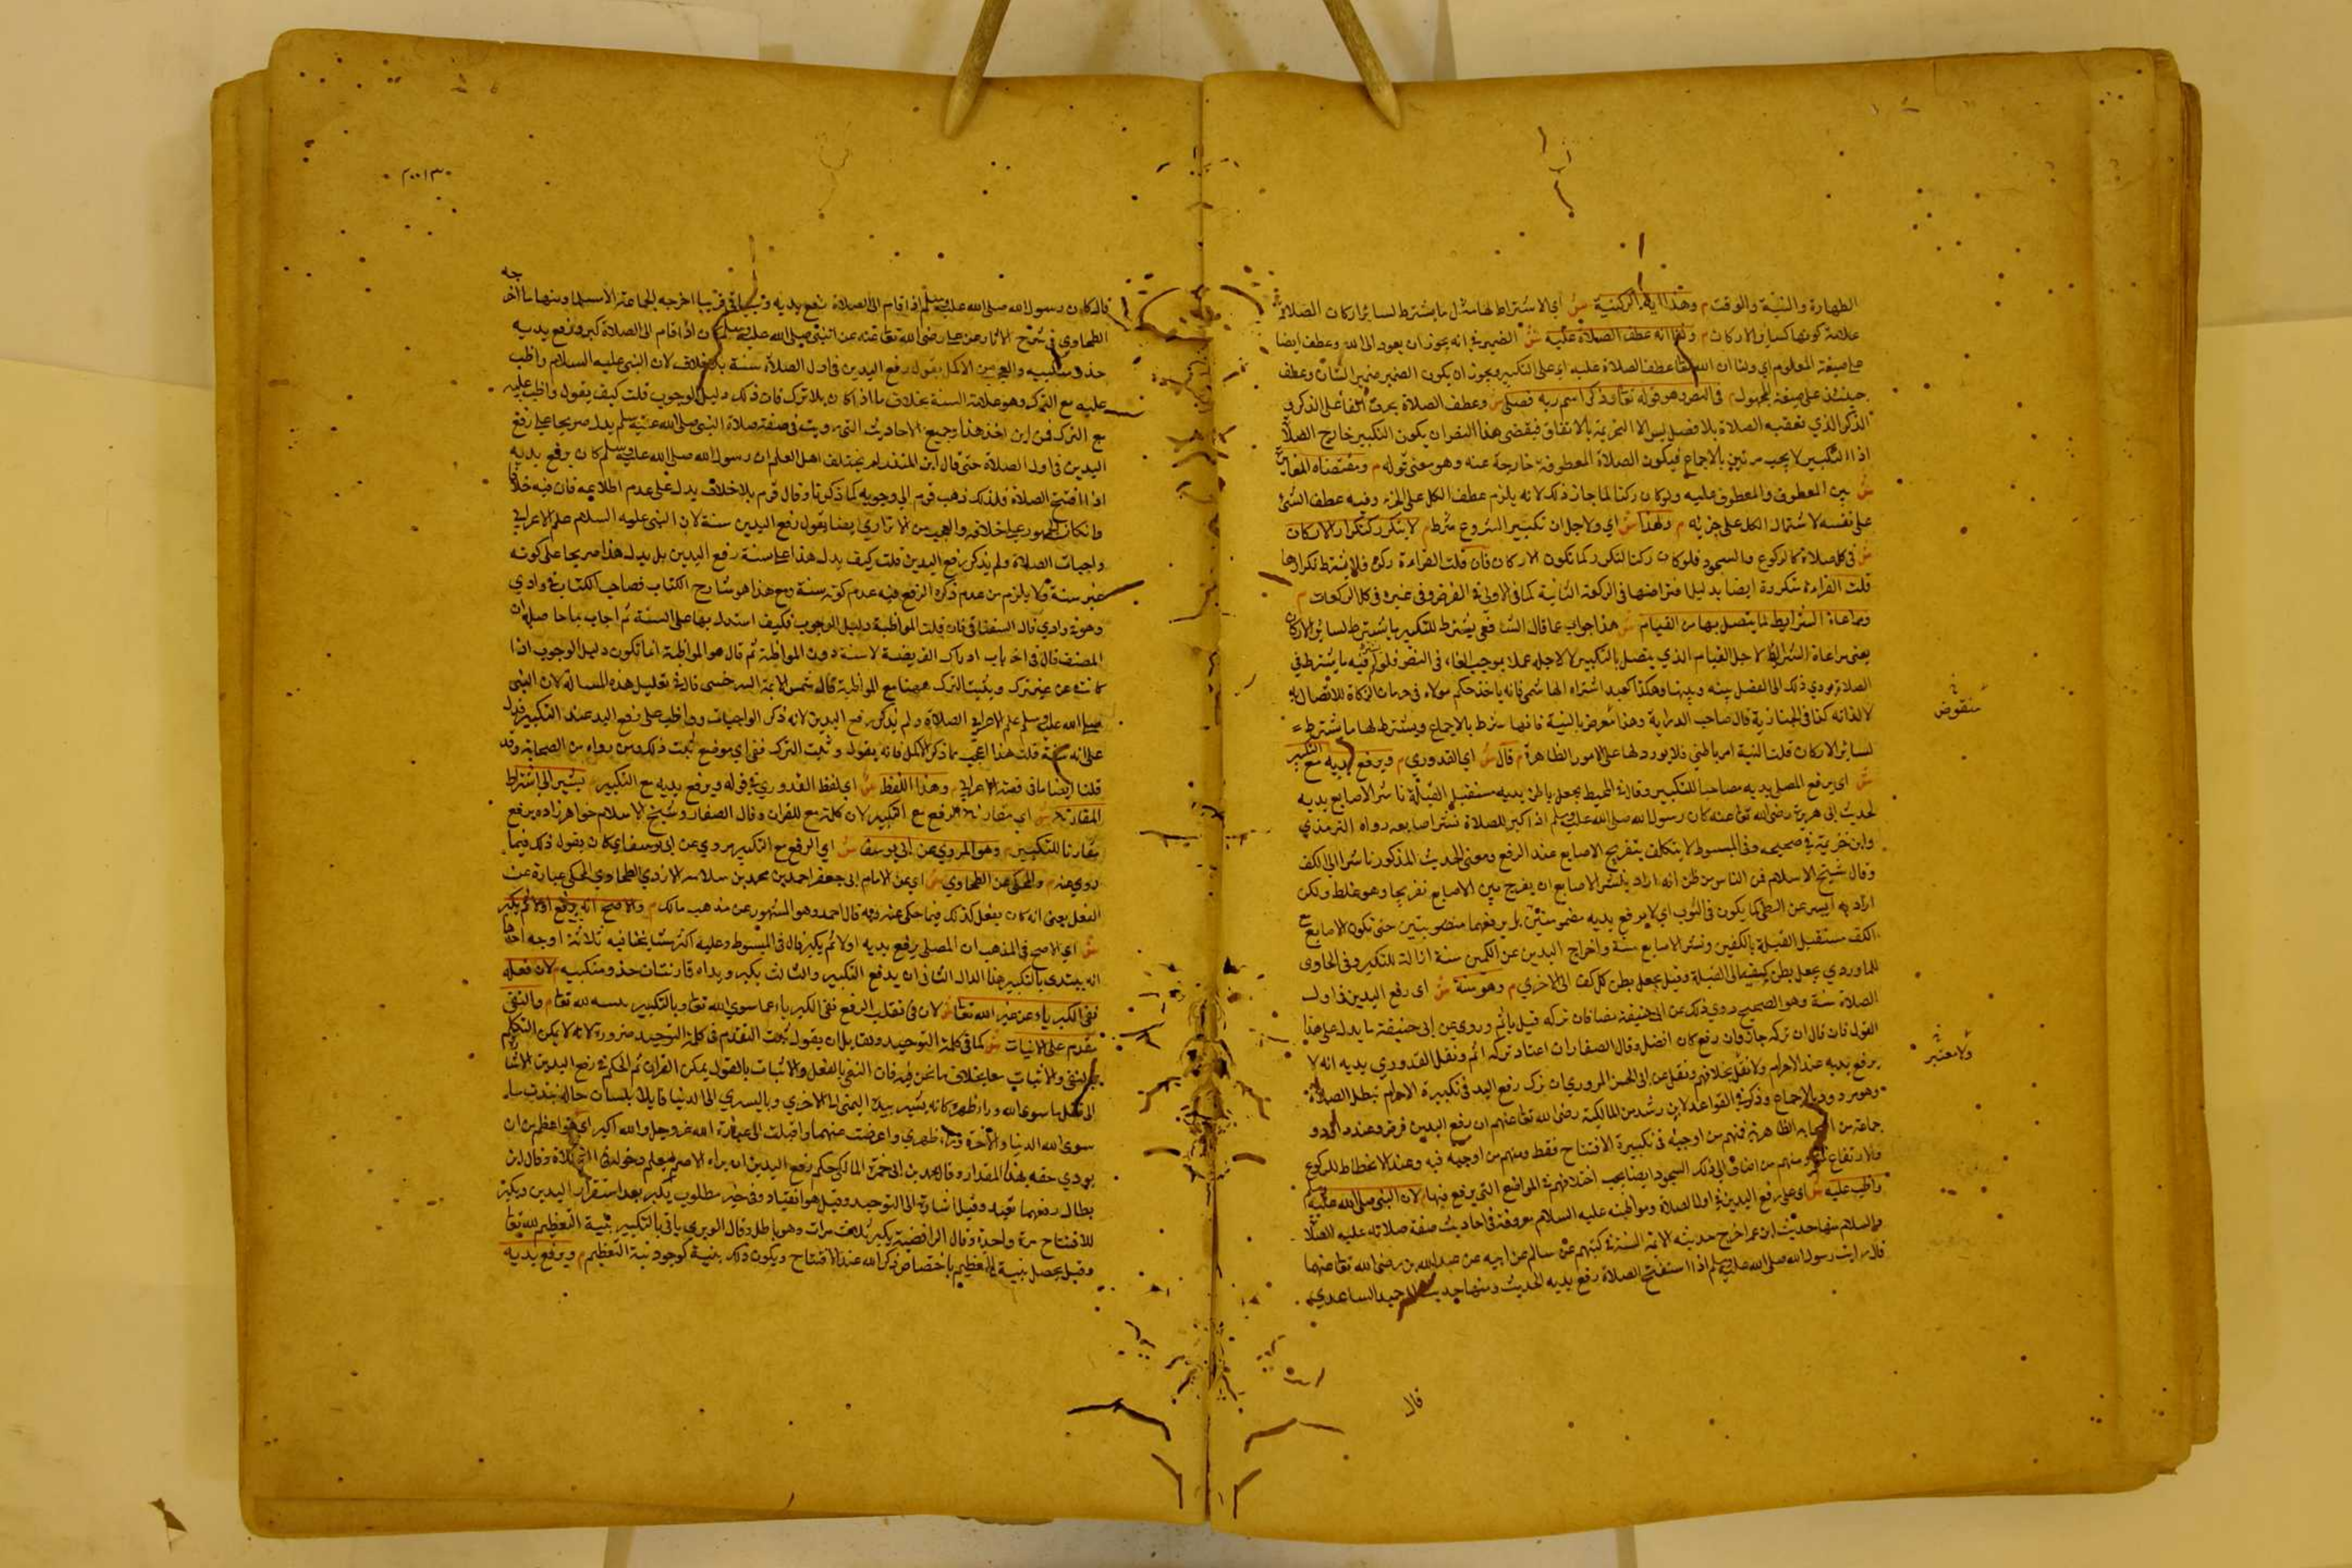 الطهارة والنية والوقت م وهذا اية الركنية ش أي الاشتراط لها مثل ما يشترط لسائر اركان الصلاة
علامة كونها كسائر الاركان م ولنا انه عطف الصلاة عليه ش الضمير في انه يجوز ان يعود الى الله وعطف ايضا
على صيغة المعلوم اي ولنا ان الله تعا عطف الصلاة عليه اي على التكبير ويجوز ان يكون الضمير ضمير الشان وعطف
حينئذ على صيغة المجهول م في النص وهو قوله تعا وذكر اسم ربه فصلى ش وعطف الصلاة بحرف الفاء على الذكر و
الذكر الذي تعقبه الصلاة بلا فصل ليس الا التحريمة بالاتفاق فيقتضي هذا النص ان يكون التكبير خارج الصلاة
اذ التكبير لا يجب مرتين بالاجماع فيكون الصلاة المعطوفة خارجة عنه وهو معنى قوله م ومقتضاه المغايرة
ش بين المعطوف والمعطوف عليه ولو كان ركنا لما جاز ذلك لانه يلزم عطف الكل على الجزء وفيه عطف الشئ
على نفسه لاشتمال الكل على جزئه م ولهذا ش اي ولاجل ان تكبير الشروع شرط م لا يتكرر كتكرار الاركان
ش في كل صلاة كالركوع والسجود فلو كان ركنا لتكرر كما تكون الاركان فان قلت القراءة ركن فلا يشترط تكرارها
قلت القراءة متكررة ايضا بدليل افتراضها في الركعة الثانية كما في الاولى في الفرض وفي غيره في كل الركعات م
ومراعاة الشرايط لما يتصل بها من القيام ش هذا جواب عما قال الشافعي يشترط للتكبير ما يشترط لسائر الاركان
يعني مراعاة الشرائط لاجل القيام الذي يتصل بالتكبير لا لاجله عملا بموجب الفاء في النص فلو لم فيه ما يشترط في
الصلاة يودي ذلك الى الفصل بينه وبينها وهكذا كعبد اشتراه الهاشمي فانه ياخذ حكم مولاه في حرمان الزكاة للاتصال به
لا لذاته كذا في الخبازية قال صاحب الدراية وهذا معرض بالنية فانها شرط بالاجماع ويشترط لها ما يشترط
لسائر الاركان قلت النية امر باطني فلا يورد لها على الامور الظاهرة م قال ش اي القدوري م ويرفع يديه مع التكبير
ش اي يرفع المصلي يديه مصاحبا للتكبير وقال في المحيط يجعل باطن يديه مستقبل القبلة ناشر الاصابع يديه
لحديث ابي هريرة رضى الله تعا عنه كان رسول الله صلى الله عليه وسلم اذا كبر للصلاة نشر اصابعه رواه الترمذي
وابن خزيمة في صحيحه وفي المبسوط لا يتكلف بتفريج الاصابع عند الرفع ومعنى الحديث المذكور ناشرا الى الكف
وقال شيخ الاسلام فن الناس من ظن انه اراد بنشر الاصابع ان يفرج بين الاصابع تفريجا وهو غلط ولكن
اراد به اليسر عن الطي كما يكون في الثوب اي لا يرفع يديه مضمومتين بل يرفعهما منصوبتين حتى تكون الاصابع مع
الكف مستقبل القبلة بالكفين ونشر الاصابع سنة واخراج اليدين عن الكمين سنة ازالة للتكبر وفي الحاوى
للماوردي يجعل بطن كفيه الى القبلة وقيل يجعل بطن كل كف الى الاخري م وهو سنة ش اى رفع اليدين في اول
الصلاة سنة وهو الصحيح روي ذلك عن ابي حنيفة نصا فان تركه قيل ياثم وروي عن ابي حنيفة ما يدل على هذا
القول فان قال ان تركه جاز وان رفع كان افضل وقال الصفار ان اعتاد تركه اثم ونقل القدوري يديه انه لا
يرفع يديه عند الاحرام ولا نقل بخلافهم ونقل عن ابي الحسن المروري ان ترك رفع اليد في تكبيرة الاحرام تبطل الصلاة
وهو مردود بالاجماع وذكر في القواعد لابن رشد من المالكية رضى الله تعا عنهم ان رفع اليدين فرض وعند داود و
جماعة من اصحابه الظاهرية فنهم من اوجبه في تكبيرة الافتتاح فقط ومنهم من اوجبه فيه وعند الانحطاط للركوع
والارتفاع ومنهم من اضاف الى ذلك السجود ايضا بحسب اختلافهم في المواضع التي يرفع فيها م لان النبي صلى الله عليه وسلم
واظب عليه ش اى على رفع اليدين في اول الصلاة ومواظبته عليه السلام معروفة في احاديث صفة صلاته عليه الصلاة
والسلام منها حديث ابن عمر اخرج حديثه الائمة الستة في كتبهم عن سالم عن ابيه عن عبد الله بن رضى الله تعا عنهما
قال رايت رسول الله صلى الله عليه وسلم اذا استفتح الصلاة رفع يديه الحديث ومنها حديث ابي حميد الساعدي
قال
منقوض
ولا معتبر
٢٠٠١٣
قال كان رسول الله صلى الله عليه وسلم اذا قام الى الصلاة رفع يديه وسياتي قريبا اخرجه الجماعة الا مسلما ومنها ما اخرجه
الطحاوي في شرح الاثار عن علي رضى الله تعا عنه عن النبي صلى الله عليه وسلم كان اذا قام الى الصلاة كبر ورفع يديه
حذو منكبيه والعجب من الاكمل يقول رفع اليدين في اول الصلاة سنة بلا خلاف لان النبي عليه السلام واظب
عليه مع الترك وهو علامة السنة بخلاف ما اذا كان بلا ترك فان ذلك دليل الوجوب قلت كيف يقول واظب عليه
مع الترك فن اين اخذ هذا وجميع الاحاديث التي رويت في صفة صلاة النبي صلى الله عليه وسلم يدل صريحا على رفع
اليدين في اول الصلاة حتى قال ابن المنذر لم يختلف اهل العلم ان رسول الله صلى الله عليه وسلم كان يرفع يديه
اذا افتتح الصلاة فلذلك ذهب قوم الى وجوبه كما ذكرنا وقال قوم بلا خلاف يدل على عدم اطلاعه فان فيه خلافا
وان كان الجمهور على خلافه والعجب من الاترازي ايضا يقول رفع اليدين سنة لان النبي عليه السلام علم الاعرابي
واجبات الصلاة ولم يذكر رفع اليدين قلت كيف يدل هذا على سنة رفع اليدين بل يدل هذا صريحا على كونه
غير سنة ولا يلزم من عدم ذكره الرفع فيه عدم كونه سنة ومع هذا هو شارح الكتاب فصاحب الكتاب في وادي
وهو في وادي قال السغناقي فان قلت المواظبة دليل الوجوب فكيف استدل بها على السنة ثم اجاب بما حاصله ان
المصنف قال في اخر باب ادراك الفريضة لا سنة دون المواظبة ثم قال هو المواظبة انما تكون دليل الوجوب اذا
كانت من غير ترك ويثبت الترك ههنا مع المواظبة قال شمس الايمة السرخسي قال في تعليل هذه المسالة لان النبي
صلى الله عليه وسلم علم الاعرابي الصلاة ولم يذكر رفع اليدين لانه ذكر الواجبات وواظب على رفع اليد عند التكبير فدل
على انه سنة قلت هذا اعجب مما ذكر الاكمل فانه يقول وثبت الترك ففي اي موضع ثبت ذلك ومن رواه من الصحابة وقد
قلنا ايضا ما في قصة الاعرابي م وهذا اللفظ ش اي لفظ القدوري في قوله ويرفع يديه مع التكبير م يشير الى اشتراط
المقارنة ش اي مقارنة الرفع مع التكبير لان كلمة مع للقران وقال الصفار وشيخ الاسلام خواهر زاده يرفع
مقارنا للتكبير م وهو المروي عن ابي يوسف ش اي الرفع مع التكبير مروي عن ابي يوسف اي كان يقول ذلك فيما
روي عنه م والمحكي عن الطحاوي ش اي عن الامام ابي جعفر احمد بن محمد بن سلامة الازدي الطحاوي المحكي عبارة عن
الفعل يعني انه كان يفعل كذلك فيما حكى عنه وبه قال احمد وهو المشهور من مذهب مالك م والاصح انه يرفع اولا ثم يكبر
ش اي الاصح في المذهب ان المصلي يرفع يديه اولا ثم يكبر قال في المبسوط وعليه اكثر مشايخنا فيه ثلاثة اوجه احدها
انه يبتدى بالتكبير الثاني ان يدفع التكبير والثالث يكبر ويداه قارتتان حذو منكبيه م لان فعله
نفي الكبرياء عن غير الله تعا ش لان في نقلب الرفع نفي الكبرياء عما سوي الله تعا وبالتكبير لله تعا م والنفي
مقدم على الاثبات ش كما في كلمة التوحيد ولقايل ان يقول بحث التقدم في كلمة التوحيد ضرورة لانه لا يمكن التكلم
بالنفي والاثبات معا بخلاف ما نحن فيه فان النفي بالفعل والاثبات بالقول يمكن القران ثم الحكم في رفع اليدين
ما سوي الله وراء ظهره كانه يشير بيده اليمنى الى الاخري وباليسري الى الدنيا قايلا بلسان حاله نبذت ما
سوى الله الدنيا والاخرة وراء ظهري واعرضت عنهما واقبلت الى عبادة الله عز وجل والله اكبر اي هو اعظم من ان
يودي حقه بهذا المقدار وقال محمد بن ابي حمزة المالكي حكم رفع اليدين ان يراه الاصم فيعلم دخوله في الصلاة وقال ابن
بطال رفعهما تعبد وقيل اشارة الى التوحيد وقيل هو انقياد وفي خير مطلوب يكبر بعد استقرار اليدين ويكبر
للافتتاح مرة واحدة وقال الرافضية يكبر ثلاث مرات وهو باطل وقال الوبري ياتي بالتكبير بنية التعظيم لله تعا
وقيل يحصل بنية التعظيم باختصاص ذكر الله عند الافتتاح ويكون ذلك بنية كوجود نية التعظيم م ويرفع يديه